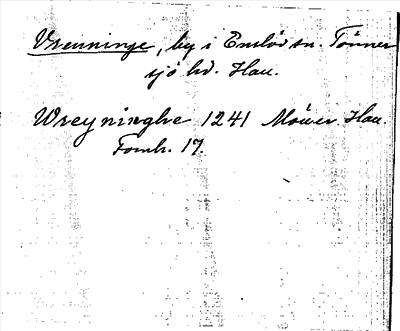 Vrenninge, by i Enslöv sn. Tönner
sjö hd. Hall.
Wreyninghe 1241 Möller Hall.
Fornh. 17.